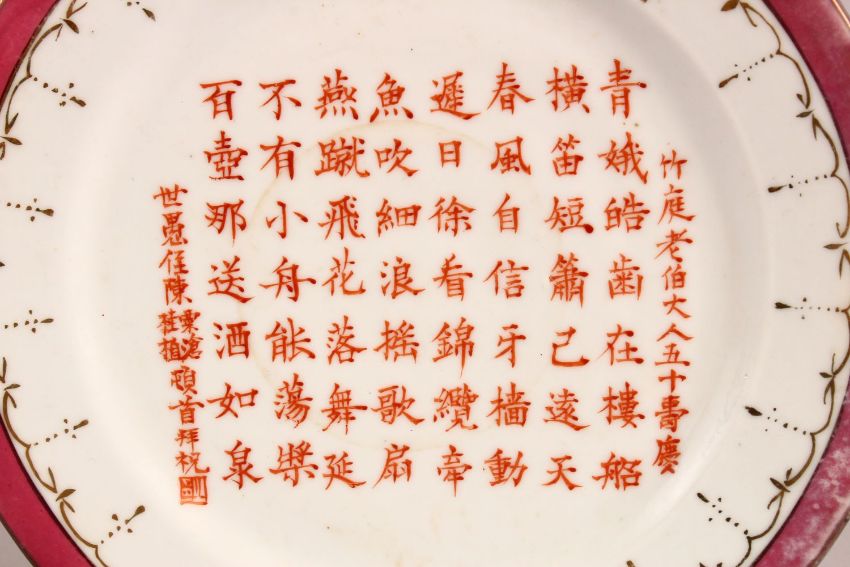 竹庭老伯大人五十壽慶
青娥皓齒在樓船
橫笛短簫已遠天
春風自信牙檣動
遲日徐看錦纜牽
魚吹細浪搖歌扇
燕蹴飛花落舞延
不有小舟能蕩槳
百壺那送洒如泉
世愚侄陳雲滄桂植頓首拜祝